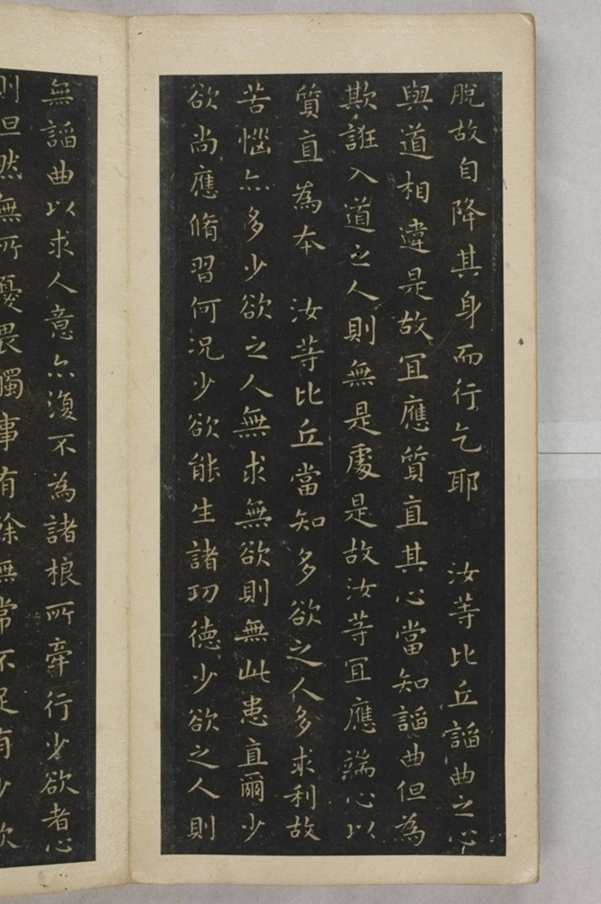 脫故自降其身而行乞耶　汝等比丘謟曲之心
與道相違是故冝應質直其心當知謟曲但為
欺誑入道之人則無是處是故汝等冝應端心以
質直為本　汝等比丘當知多欲之人多求利故
苦惱亦多少欲之人無求無欲則無此患直爾少
欲尚應脩習何况少欲能生諸功德少欲之人則
無謟曲以求人意亦復不為諸根所牽行少欲者心
則坦然無所憂畏觸事有餘無常不足有少欲